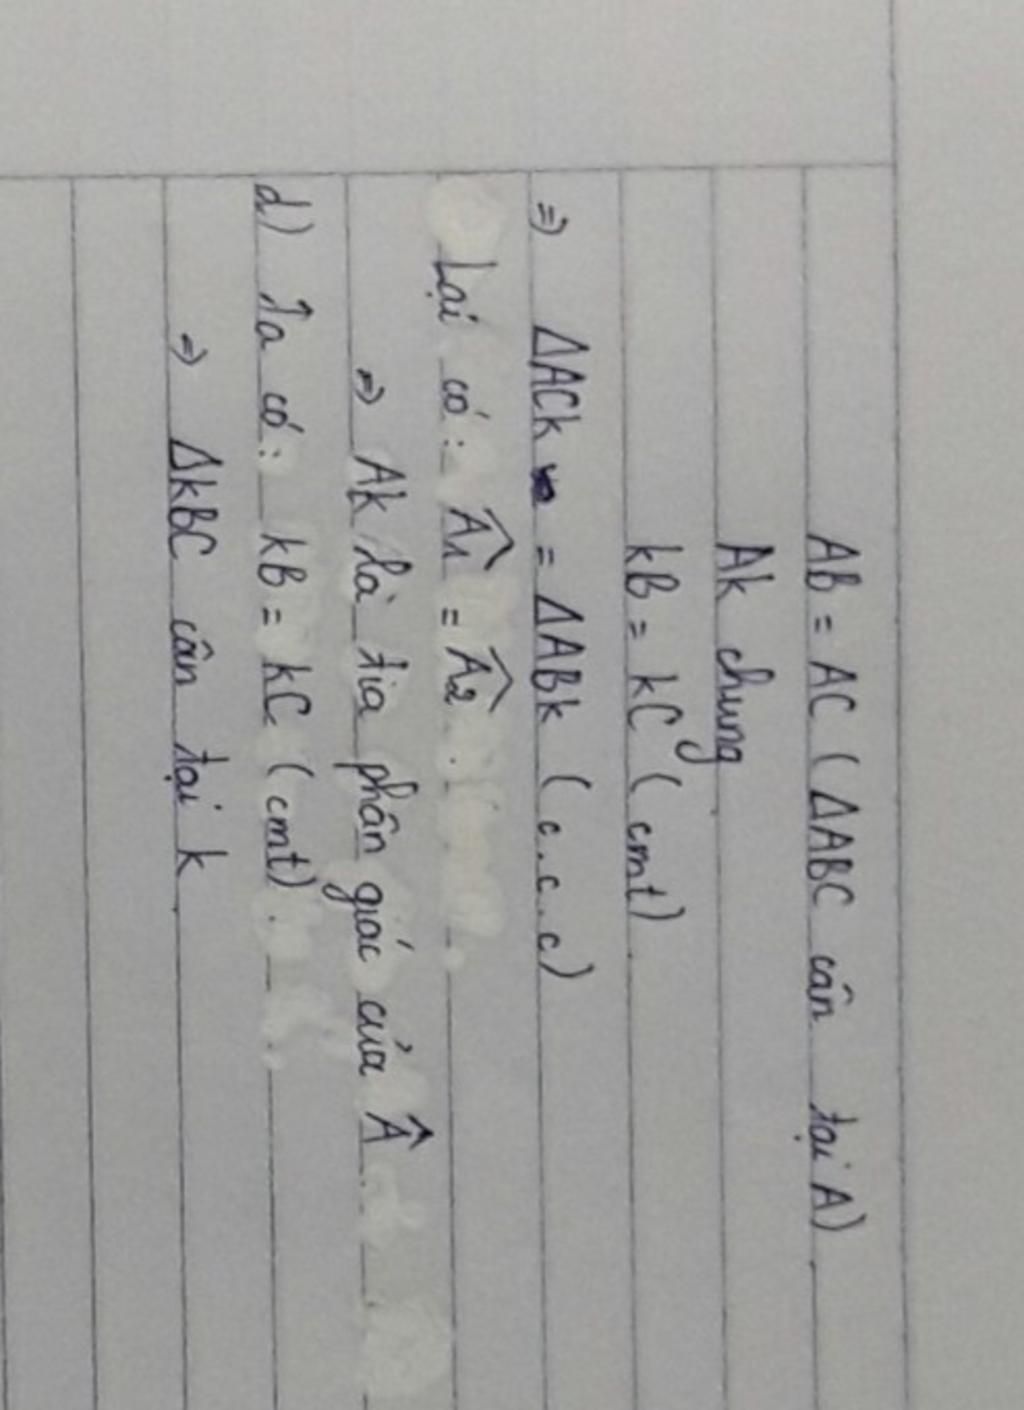 AB = AC ( ΔABC cân tại A)
Ak chung
kB = kC ( cmt)
=> ΔACk = ΔABk ( c.c.c)
Lại có: Â1 = Â2.
=> Ak là tia phân giác của Â
d) Ta có: kB = kC (cmt).
=> ΔkBC cân tại k